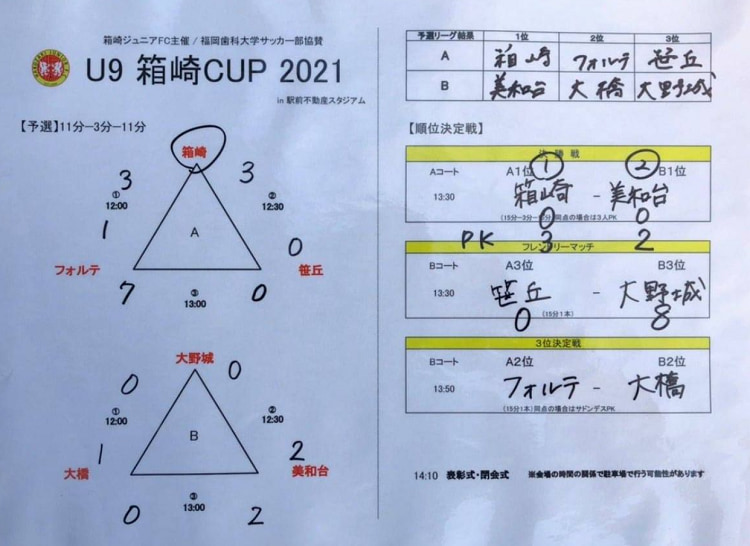 箱崎ジュニアFC主催 / 福岡歯科大学サッカー部協賛
U9 箱崎CUP 2021
in 駅前不動産スタジアム
【予選】11分−3分−11分
箱崎
3 3
① 12:00
② 12:30
A
1 0
フォルテ 笹丘
7 0
③ 13:00
大野城
0 0
① 12:00
② 12:30
B
1 2
大橋 美和台
0 2
③ 13:00
予選リーグ結果 1位 2位 3位
A 箱崎 フォルテ 笹丘
B 美和台 大橋 大野城
【順位決定戦】
決勝戦
Aコート A1位 ① ② B1位
13:30 箱崎 − 美和台
0 0
PK 3 2
フレンドリーマッチ
Bコート A3位 B3位
13:30 笹丘 − 大野城
(15分1本)
0 8
3位決定戦
Bコート A2位 B2位
13:50 フォルテ − 大橋
(15分1本)同点の場合はサドンデスPK
14:10 表彰式・閉会式 ※会場の時間の関係で駐車場で行う可能性があります